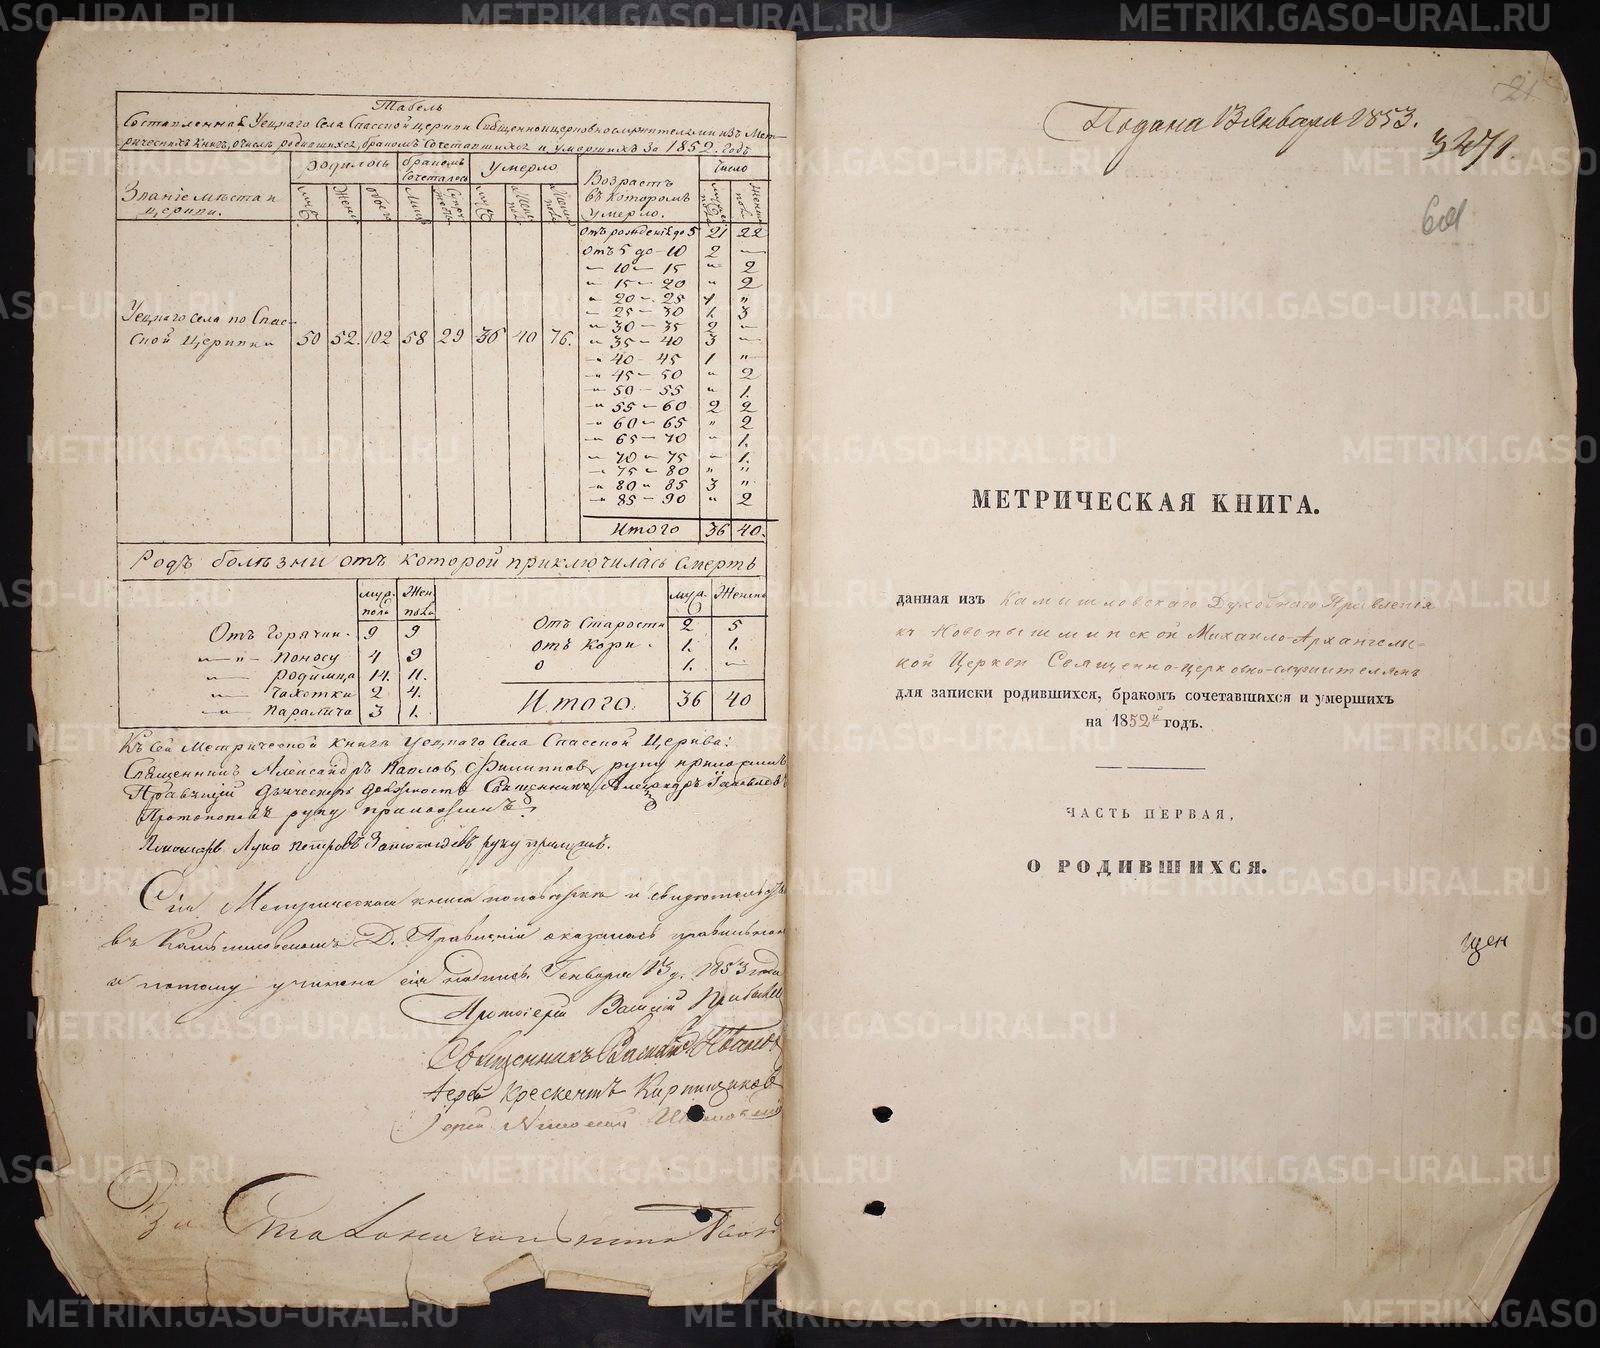 Табель
Составленная Уецкаго Села Спасской церкви Священноцерковнослужителями изъ Мет-
рическихъ книгъ, о числѣ родившихся, бракомъ сочетавшихся и умершихъ за 1852. годъ
Званіе мѣста и церкви.
родилось
бракомъ сочеталось
умерло
Возрастъ въ которомъ умерло.
Число
Женс
обоего
Уецкаго села по Спас-
ской Церкви
50 52. 102 58 29 36 40 76.
отъ рожденія до 5 21 22
отъ 5 до 10 2 —
— 10 — 15 " 2
" 15 — 20 " 2
" 20 — 25 1 "
— 25 — 30 1. 3
" 30 — 35 2 —
" 35 — 40 3 —
" 40 — 45 1 "
" 45 — 50 " 2
" 50 — 55 " 1.
" 55 — 60 2 2
" 60 — 65 " 2
" 65 — 70 " 1.
" 70 — 75 — 1.
— 75 — 80 " "
" 80 " 85 3 "
" 85 — 90 " 2
Итого 36 40.
Родъ болѣзни отъ которой приключилась смерть
муж. пола Жен. пола
Отъ Горячки. 9 9
—"— поносу 4 9
—"— родимца 14. 11.
—"— чахотки 2 4.
—"— паралича 3 1.
муж. Женска
отъ Старости 2 5
отъ Кори. 1. 1.
0 1. —
Итого. 36 40
Къ сей Метрической книгѣ Уецкаго Села Спасской Церкви:
Священникъ Александръ Карловъ Филипповъ руку приложилъ
Священникъ Александръ
Протопоповъ руку приложилъ
Пономарь Лука Петровъ руку прилож.
Сія Метрическая книга по повѣркѣ и свидѣтельству
въ Камышловскомъ Д. Правленіи оказалась правильною
и потому учинена сія надпись. Генваря 13 д. 1853 года
Протоіерей Василій
Священникъ
Іерей Крескентъ Кирпищиковъ
Іерей
За
Подана 13 Января 1853.
МЕТРИЧЕСКАЯ КНИГА.
данная изъ Камышловскаго Духовнаго Правленія
къ Новопышминской Михаило-Архангельс-
кой Церкви Священно-церковно-служителямъ
для записки родившихся, бракомъ сочетавшихся и умершихъ
на 1852й годъ.
ЧАСТЬ ПЕРВАЯ,
О РОДИВШИХСЯ.
METRIKI.GASO-URAL.RU